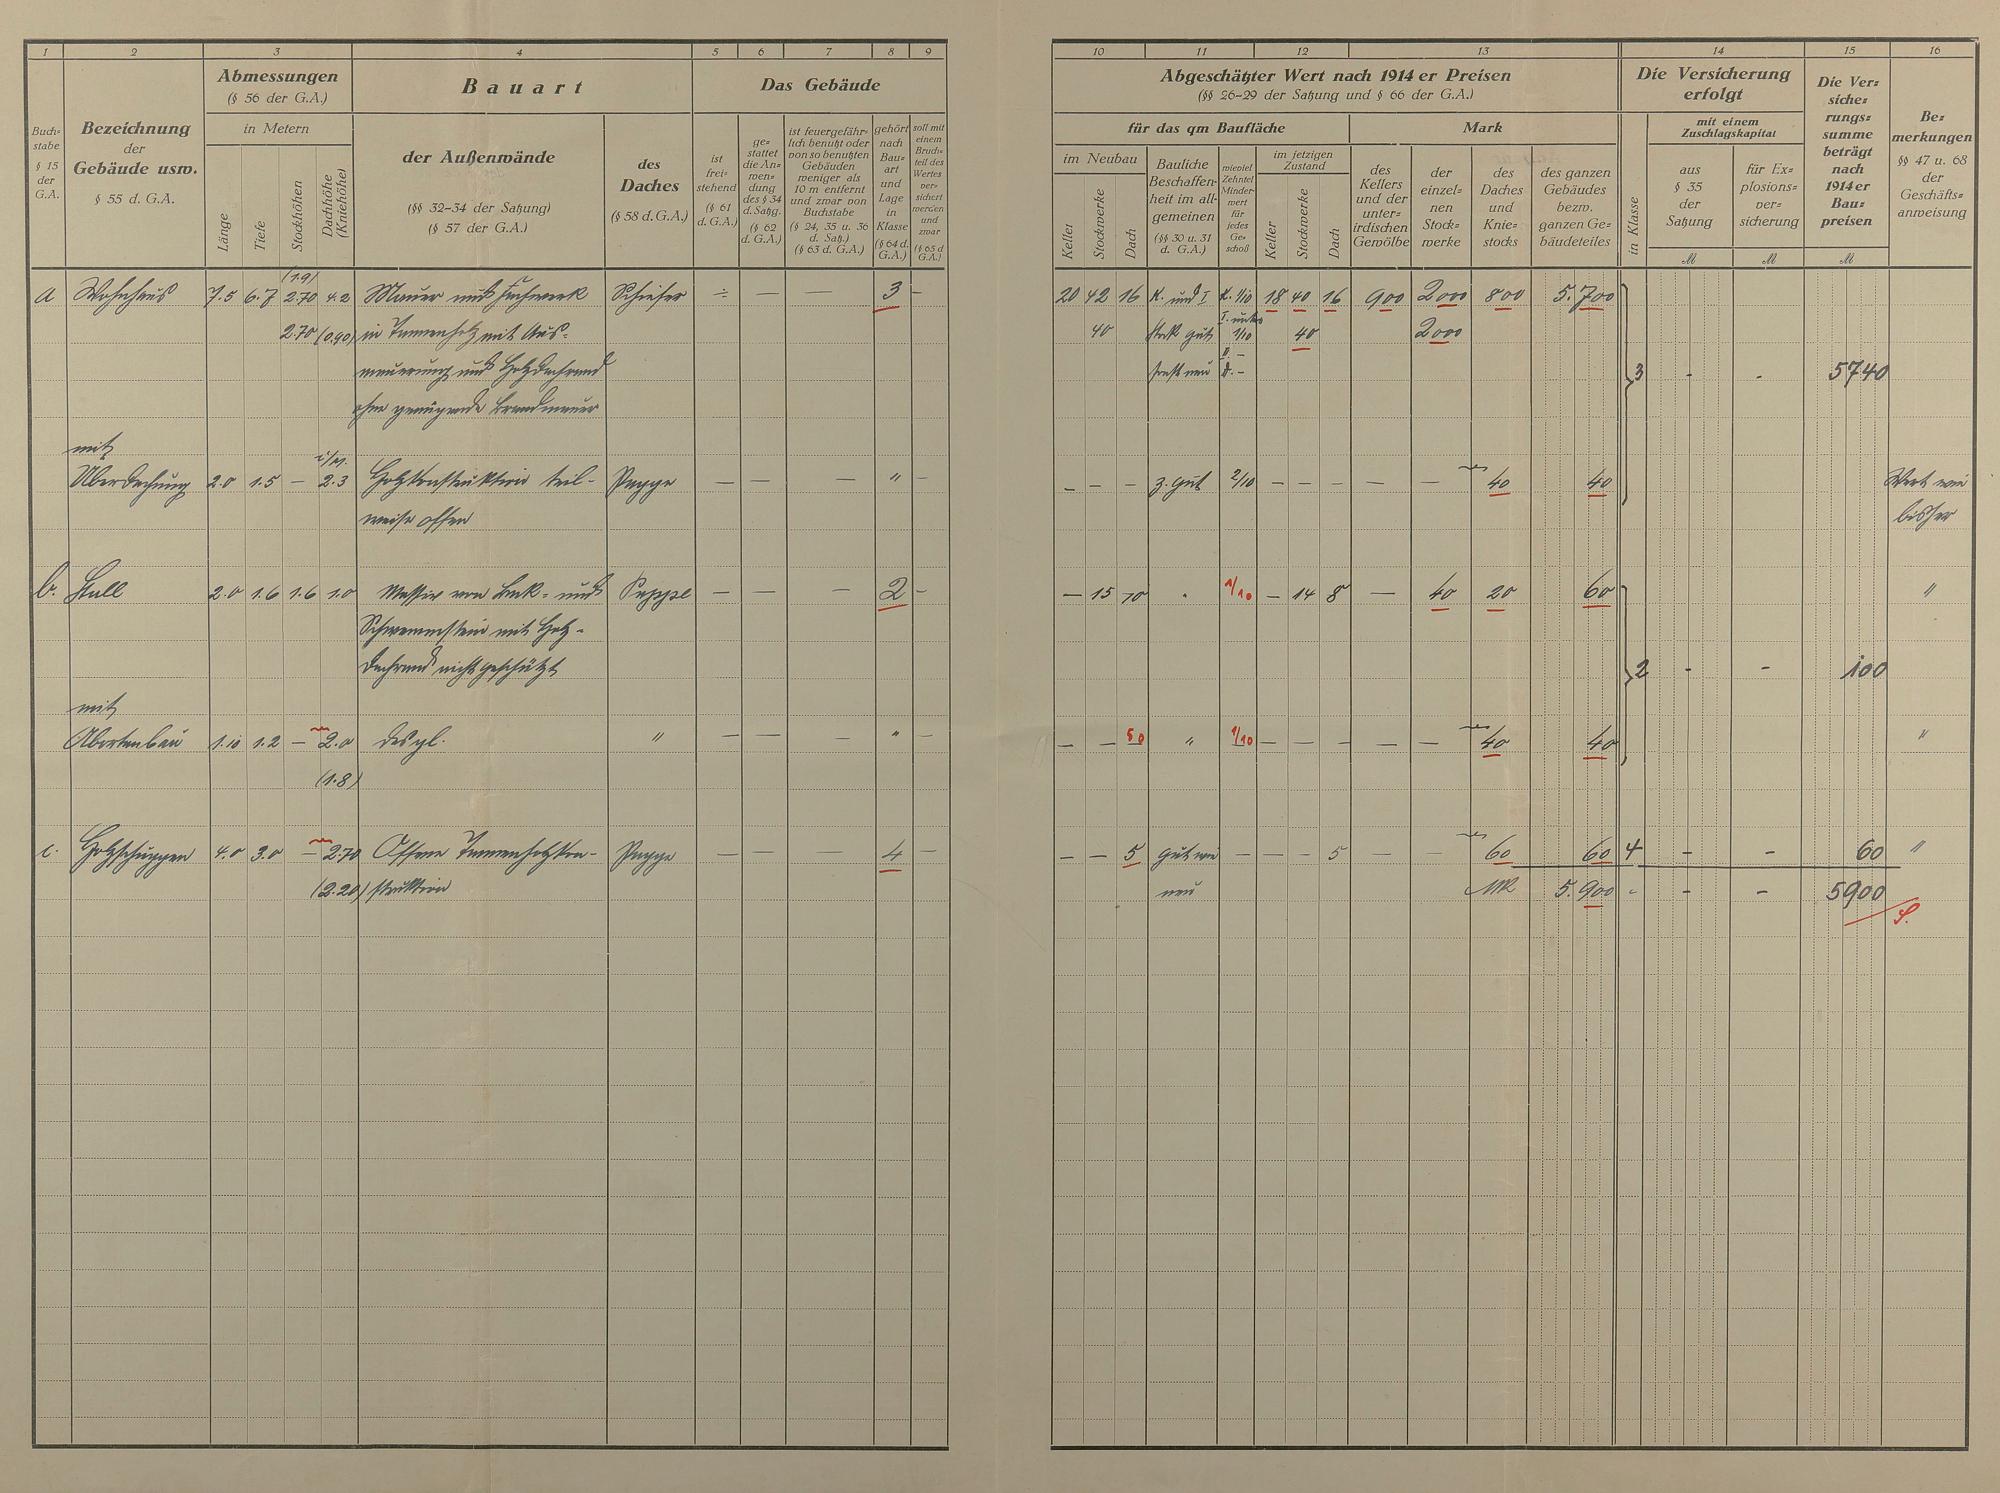 1 2 3 4 5 6 7 8 9
Buch=
stabe
§ 15
der
G.A.
Bezeichnung
der
Gebäude usw.
§ 55 d. G.A.
Abmessungen
(§ 56 der G.A.)
in Metern
Länge
Tiefe
Stockhöhen
Dachhöhe
(Kniehöhe)
Bauart
der Außenwände
(§§ 32–34 der Satzung)
(§ 57 der G.A.)
des
Daches
(§ 58 d. G.A.)
Das Gebäude
ist
frei=
stehend
(§ 61
d. G.A.)
ge=
stattet
die An=
wen=
dung
des § 34
d. Satzg.
(§ 62
d. G.A.)
ist feuergefähr=
lich benutzt oder
von so benutzten
Gebäuden
weniger als
10 m entfernt
und zwar von
Buchstabe
(§ 24, 35 u. 36
d. Satz.)
(§ 63 d. G.A.)
gehört
nach
Bau=
art
und
Lage
in
Klasse
(§ 64 d.
G.A.)
soll mit
einem
Bruch=
teil des
Wertes
ver=
sichert
werden
und
zwar
(§ 65 d
G.A.)
(1.9)
a Wohnhaus 7.5 6.7 2.70 4.2 Mauer und Fachwerk Schiefer ÷ — — 3 –
2.70 (0.90) in Tannenholz mit Aus-
mauerung und Holzdachrand
ohne genügende Brandmauer
mit
i/M.
Überdachung 2.0 1.5 — 2.3 Holzkonstruktion teil- Pappe — — — " –
weise offen
b. Stall 2.0 1.6 1.6 1.0 Massiv von Back- und Pappe — — — 2 –
Schwemmstein mit Holz-
dachrand nicht geschützt
mit
Abortanbau 1.10 1.2 — 2.0 desgl. " — — — " –
(1.8)
c. Holzschuppen 4.0 3.0 — 2.70 Offene Tannenholzkon- Pappe — — 4 —
(2.20) struktion
10 11 12 13 14 15 16
Abgeschätzter Wert nach 1914 er Preisen
(§§ 26–29 der Satzung und § 66 der G.A.)
für das qm Baufläche
Mark
im Neubau
Keller
Stockwerke
Dach
Bauliche
Beschaffen=
heit im all=
gemeinen
(§§ 30 u. 31
d. G.A.)
wieviel
Zehntel
Minder=
wert
für
jedes
Ge=
schoß
im jetzigen
Zustand
Keller
Stockwerke
Dach
des
Kellers
und der
unter=
irdischen
Gewölbe
der
einzel=
nen
Stock=
werke
des
Daches
und
Knie=
stocks
des ganzen
Gebäudes
bezw.
ganzen Ge=
bäudeteiles
in Klasse
Die Versicherung
erfolgt
mit einem
Zuschlagskapital
aus
§ 35
der
Satzung
für Ex=
plosions=
ver=
sicherung
Die Ver=
siche=
rungs=
summe
beträgt
nach
1914 er
Bau=
preisen
Be=
merkungen
§§ 47 u. 68
der
Geschäfts=
anweisung
M M M
20 42 16 K. und I K. 1/10 18 40 16 900 2000 800 5.700
40 gut 1/10 40 2000
sonst neu D. –
3 - - 5740
— — — z. gut 2/10 — — — — — 40 40 Wert wie
bisher
— 15 10 " 1/10 — 14 8 — 40 20 60 "
2 - - 100
— — 50 " 1/10 — — — — — 40 40 "
— — 5 gut wie — — — 5 — — 60 60 4 – – 60 "
neu MK 5.900 – – 5900